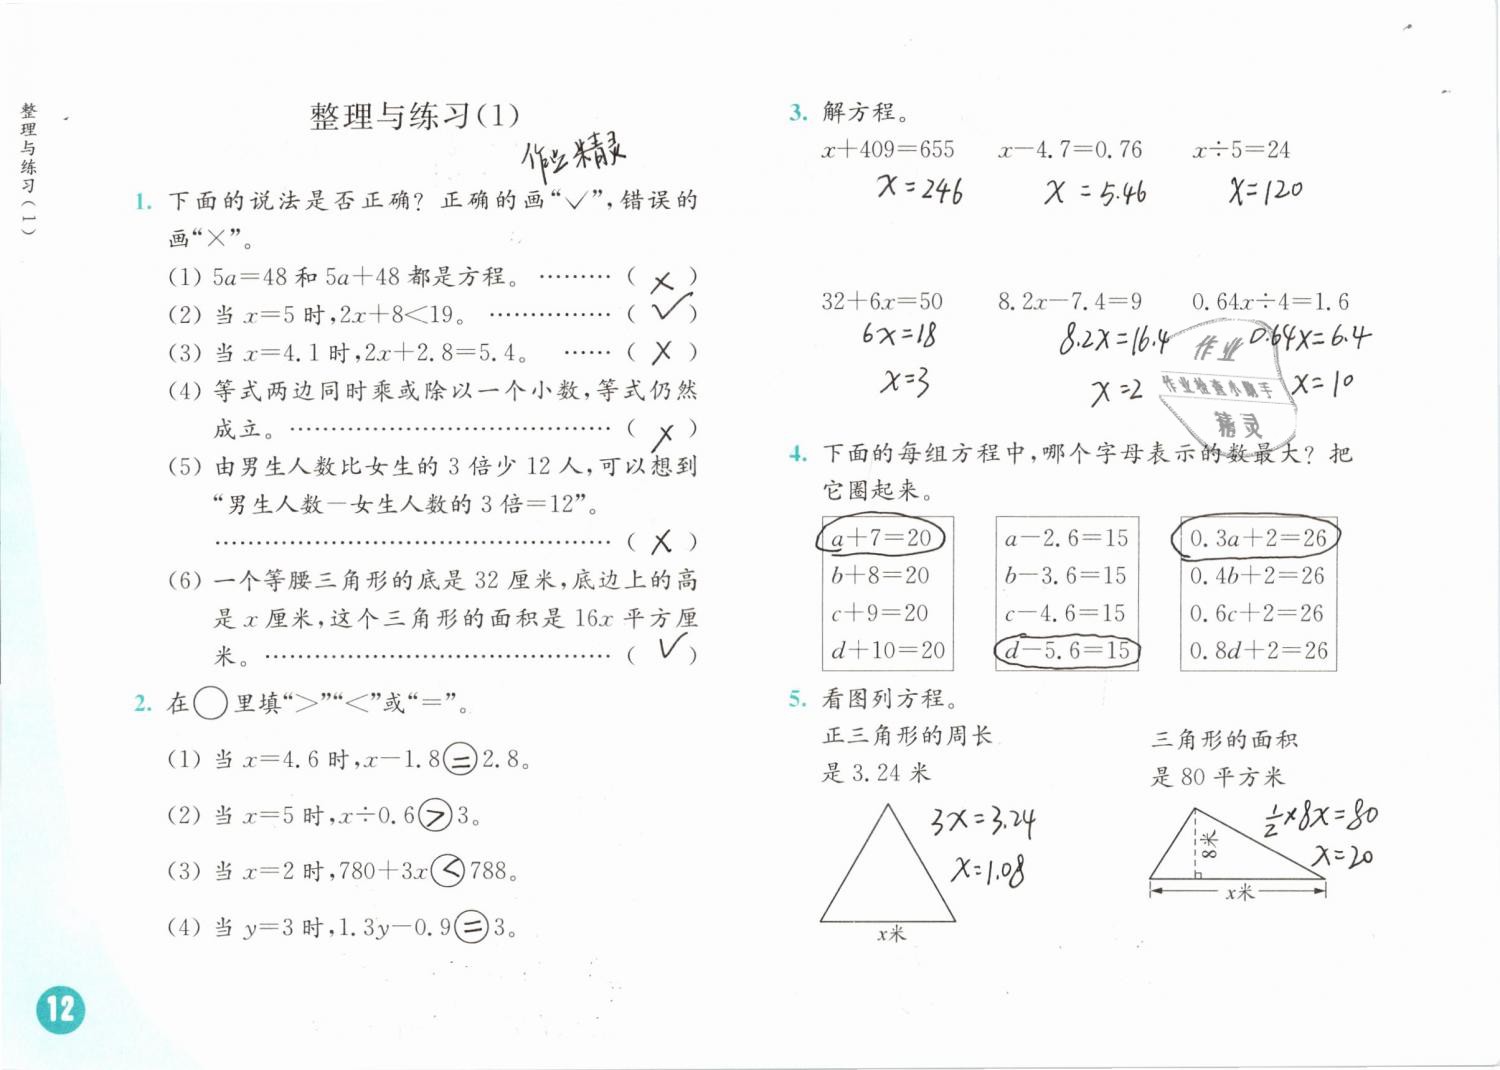 整理与练习(1)
整理与练习(一)
作业精灵
1. 下面的说法是否正确？正确的画“√”，错误的
画“×”。
(1) 5a=48 和 5a+48 都是方程。 ……… ( × )
(2) 当 x=5 时,2x+8<19。 …………… ( √ )
(3) 当 x=4.1 时,2x+2.8=5.4。 …… ( × )
(4) 等式两边同时乘或除以一个小数,等式仍然
成立。 ………………………………… ( × )
(5) 由男生人数比女生的 3 倍少 12 人,可以想到
“男生人数－女生人数的 3 倍=12”。
………………………………………… ( × )
(6) 一个等腰三角形的底是 32 厘米,底边上的高
是 x 厘米,这个三角形的面积是 16x 平方厘
米。 …………………………………… ( √ )
2. 在○里填“>”“<”或“=”。
(1) 当 x=4.6 时,x-1.8=2.8。
(2) 当 x=5 时,x÷0.6>3。
(3) 当 x=2 时,780+3x<788。
(4) 当 y=3 时,1.3y-0.9=3。
12
3. 解方程。
x+409=655 x-4.7=0.76 x÷5=24
x=246 x=5.46 x=120
32+6x=50 8.2x-7.4=9 0.64x÷4=1.6
6x=18 8.2x=16.4 0.64x=6.4
x=3 x=2 x=10
作业
作业检查小助手
精灵
4. 下面的每组方程中,哪个字母表示的数最大？把
它圈起来。
a+7=20 a-2.6=15 0.3a+2=26
b+8=20 b-3.6=15 0.4b+2=26
c+9=20 c-4.6=15 0.6c+2=26
d+10=20 d-5.6=15 0.8d+2=26
5. 看图列方程。
正三角形的周长
是 3.24 米
3x=3.24
x=1.08
x米
三角形的面积
是 80 平方米
½×8x=80
x=20
8米
x米